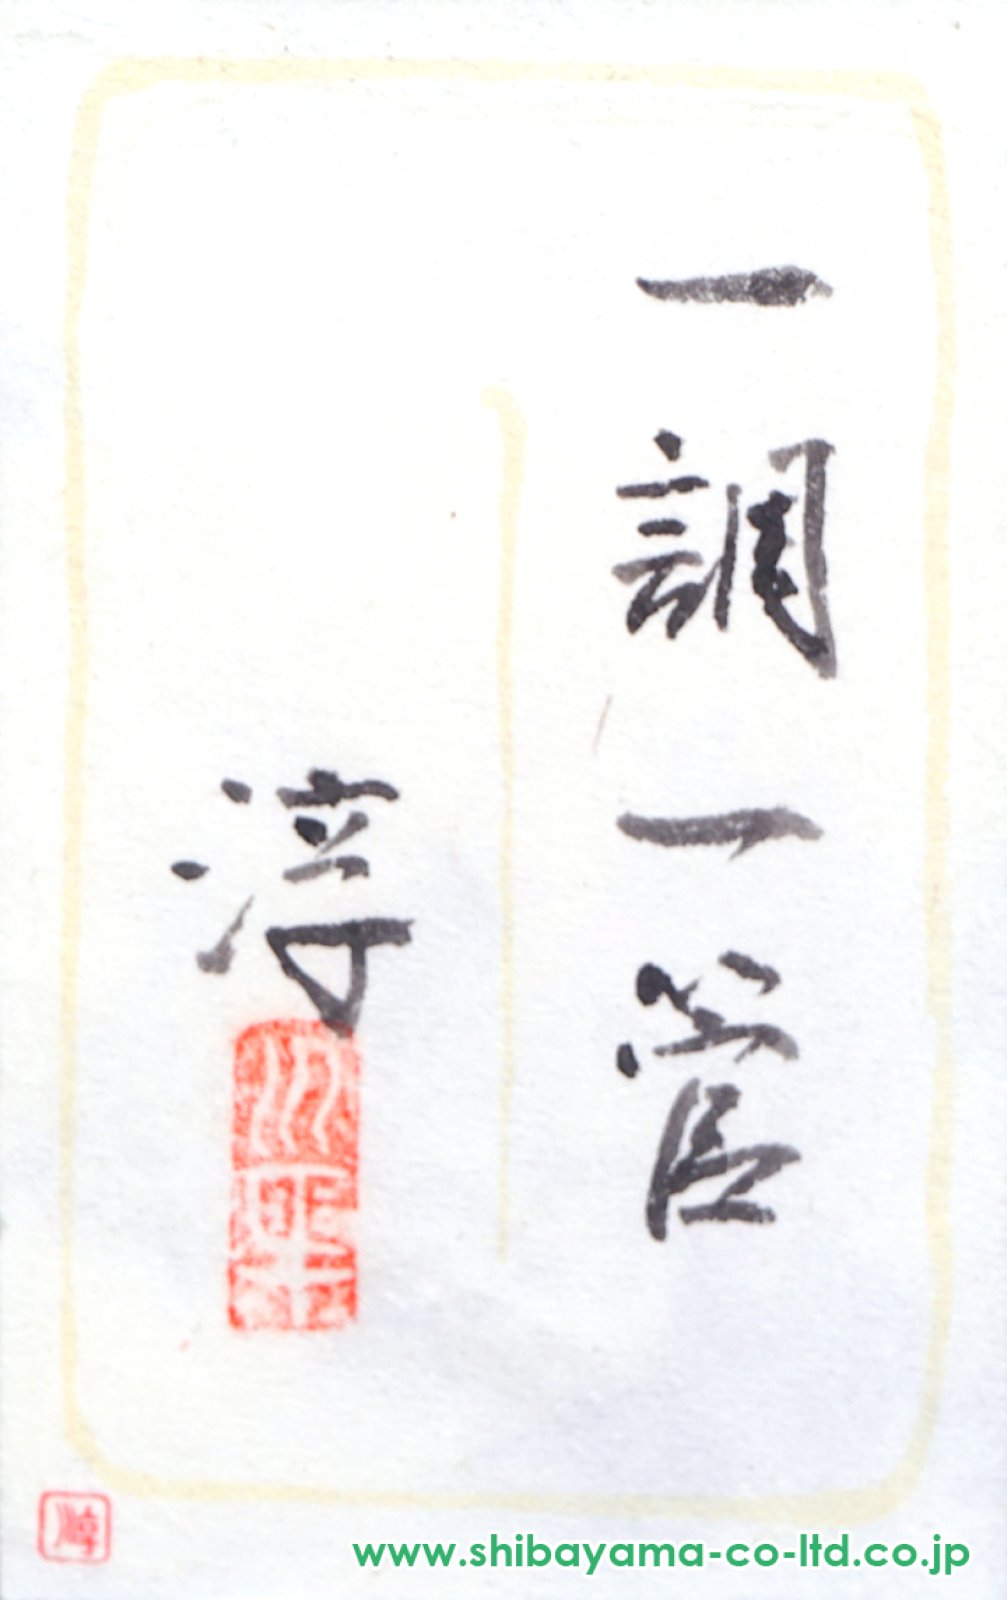 一調一管
淳
川平
淳
www.shibayama-co-ltd.co.jp